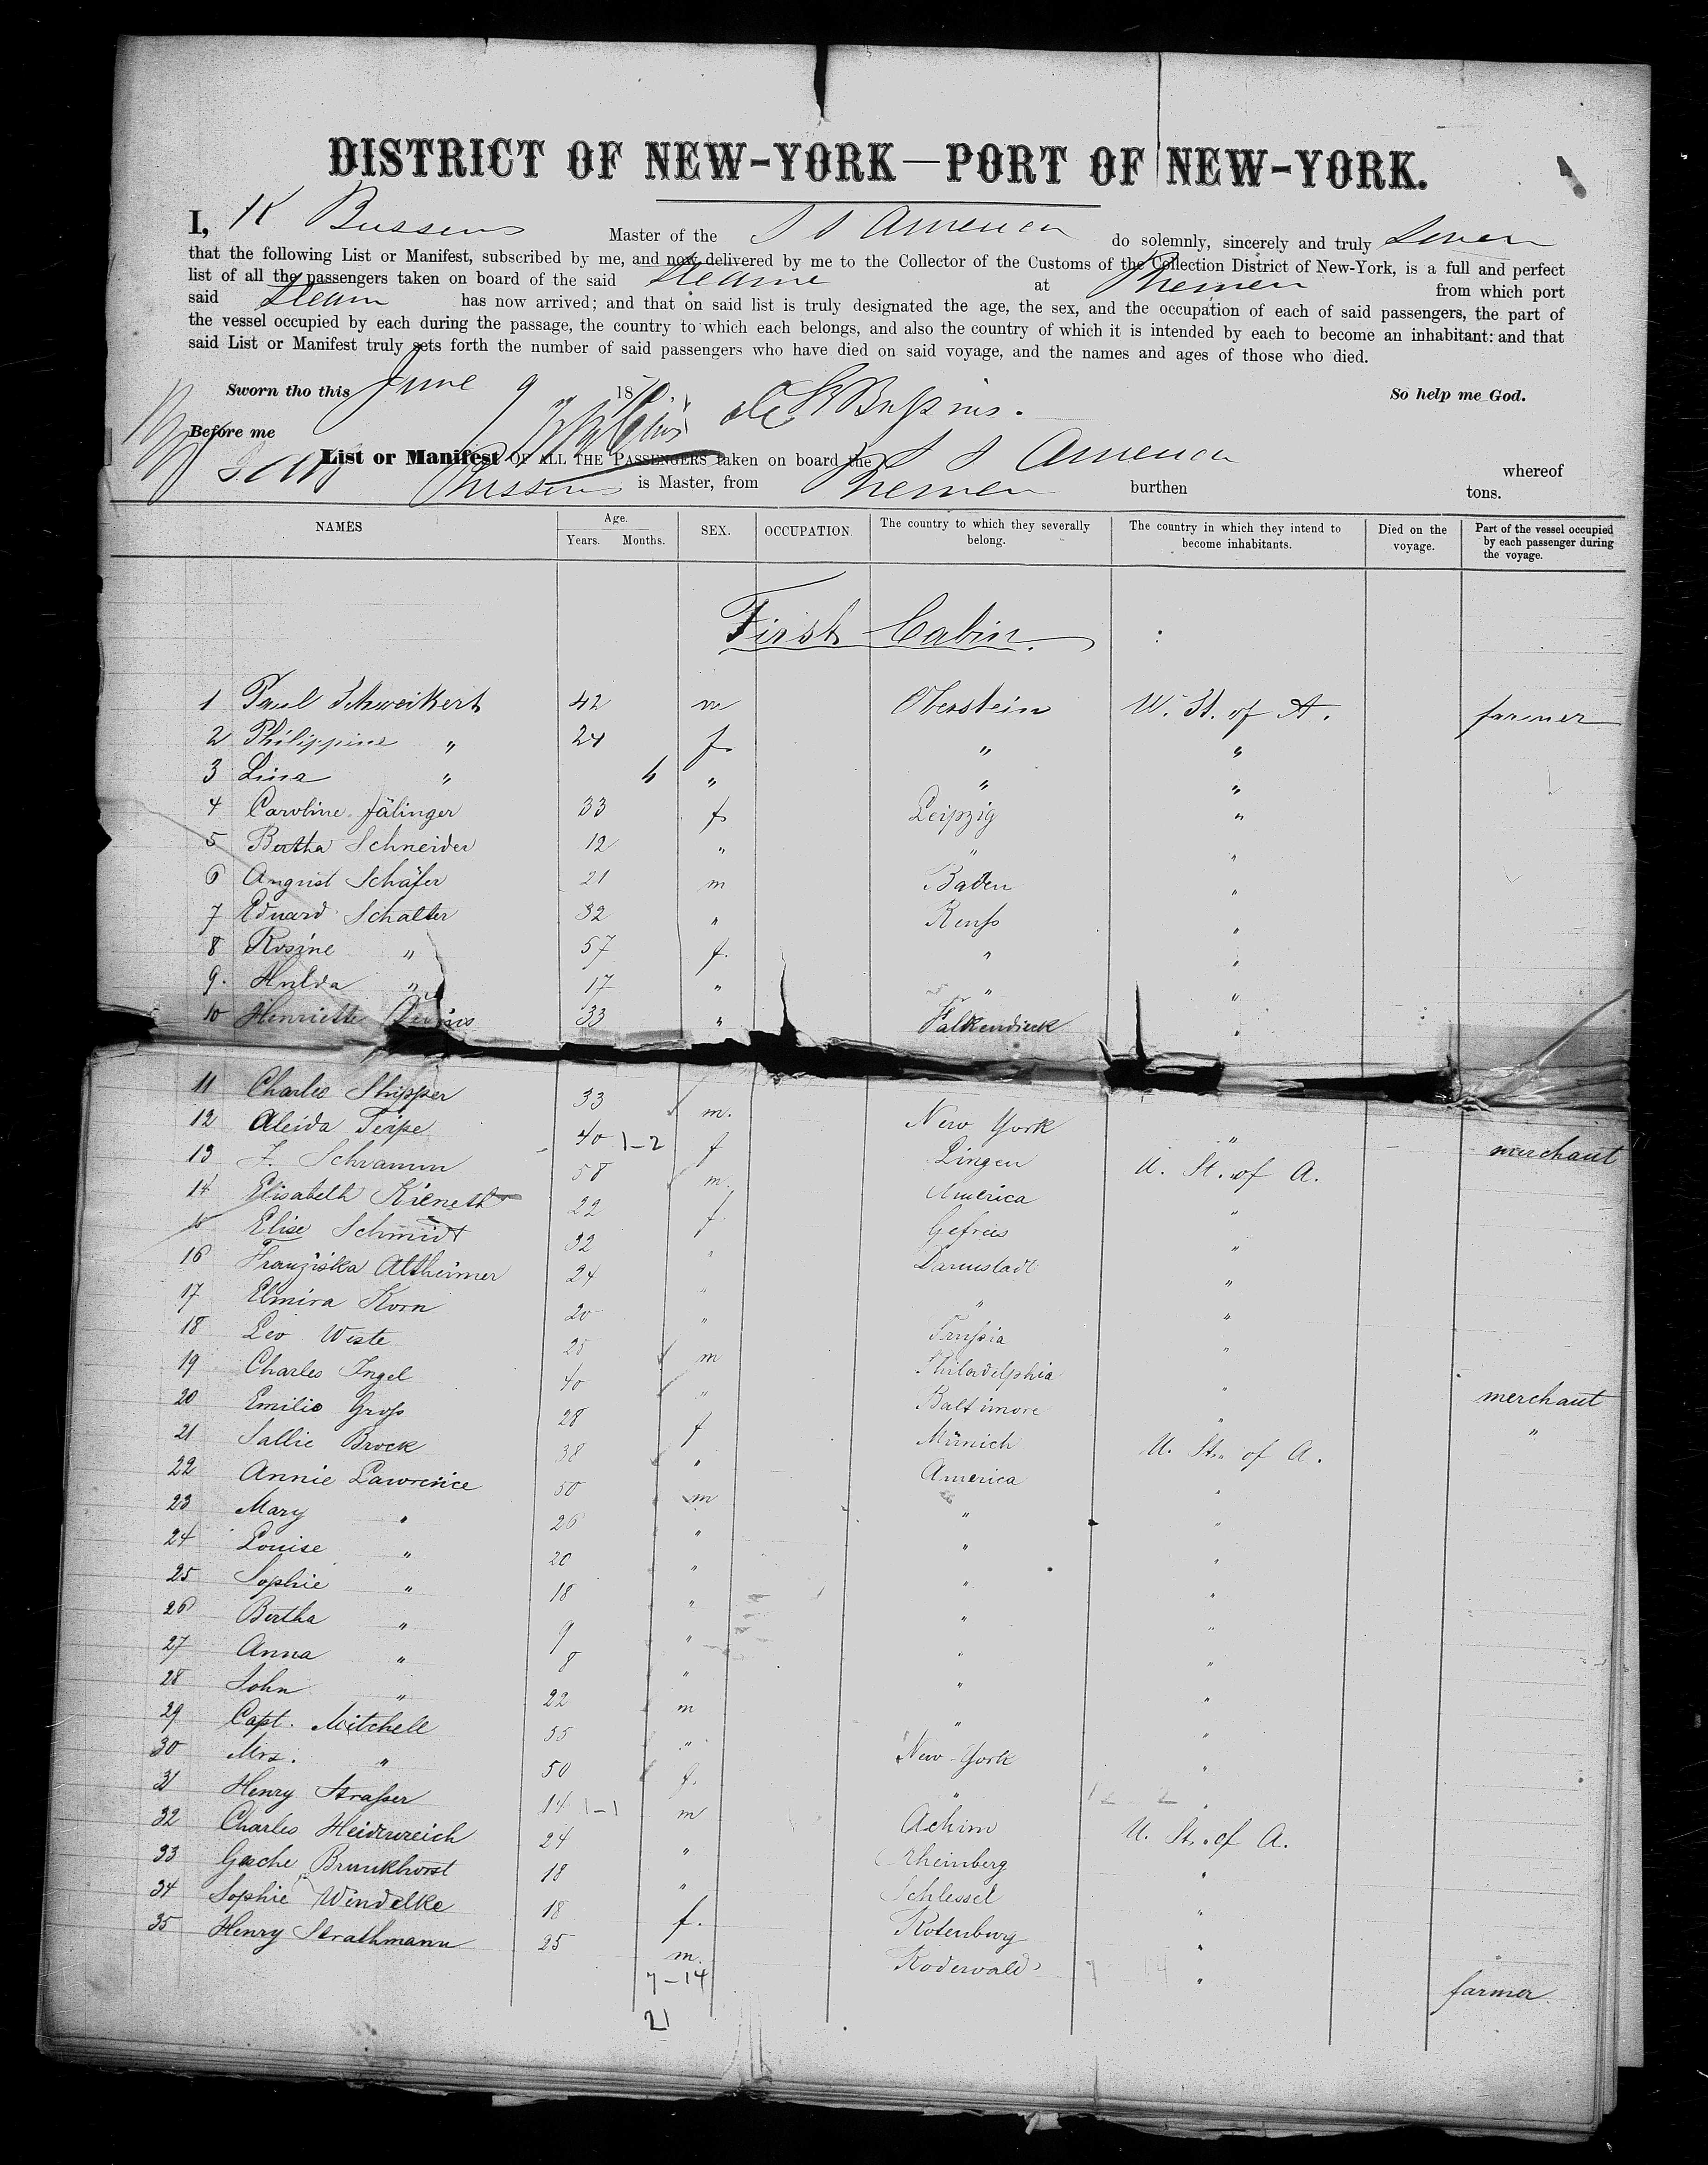 DISTRICT OF NEW-YORK—PORT OF NEW-YORK.
I, K Bussius Master of the S S America do solemnly, sincerely and truly swear
that the following List or Manifest, subscribed by me, and now delivered by me to the Collector of the Customs of the Collection District of New-York, is a full and perfect
list of all the passengers taken on board of the said Steamer at Bremen from which port
said Steam has now arrived; and that on said list is truly designated the age, the sex, and the occupation of each of said passengers, the part of
the vessel occupied by each during the passage, the country to which each belongs, and also the country of which it is intended by each to become an inhabitant: and that
said List or Manifest truly sets forth the number of said passengers who have died on said voyage, and the names and ages of those who died.
Sworn tho this June 9 1870. So help me God.
Before me
List or Manifest OF ALL THE PASSENGERS taken on board the S S America whereof
Bussius is Master, from Bremen burthen tons.
NAMES Age. Years. Months. SEX. OCCUPATION The country to which they severally belong. The country in which they intend to become inhabitants. Died on the voyage. Part of the vessel occupied by each passenger during the voyage.
First Cabin.
1 Paul Schweikert 42 m Oberstein U. St. of A. farmer
2 Philippine " 24 f " "
3 Lina " " " "
4 Caroline 33 f Leipzig "
5 Bertha Schneider 12 " " "
6 August Schäfer 21 m Baden "
7 Eduard Schalter 32 " Reuß "
8 Rosine " 57 f. " "
9. Hulda " 17 " " "
10 Henriette 33 " "
11 Charles Shipper 33 m. New York "
12 Aleida Teipe 40 1-2 f Lingen U. St. of A. merchant
13 J. Schramm 58 m. America "
14 Elisabeth 22 f Gefrees "
15 Elise Schmidt 32 " Darmstadt "
16 Franziska Altheimer 24 " " "
17 Elmira Korn 20 " Prußia "
18 Leo Weste 25 m Philadelphia "
19 Charles Ingel 40 " Baltimore " merchant
20 Emilie Groß 28 f Münich U. St. of A. "
21 Sallie Brock 38 " America "
22 Annie Lawrence 50 m " "
23 Mary " 26 " " "
24 Louise " 20 " " "
25 Sophie " 18 " " "
26 Bertha " 9 " " "
27 Anna " 8 " " "
28 John " 22 m " "
29 Capt. Mitchell 55 " New York "
30 Mrs. " 50 f. " "
31 Henry Straßer 14 1-1 m Achim U. St. of A.
32 Charles Heidenreich 24 " Rheinberg "
33 Gesche Brunkhorst 18 " Schlessel "
34 Sophie Windelke 18 f. Rotenburg "
35 Henry Strathmann 25 m. Rodewald " farmer
7-14
21